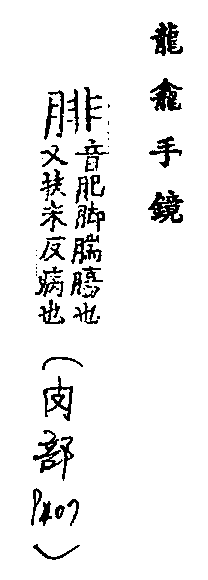 龍龕手鏡
腓音肥脚腨腸也
又扶未反病也
(肉部
P407)